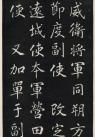 威衛將軍同朔方
節度副使改定
遠城使本軍營田
使又加單于副